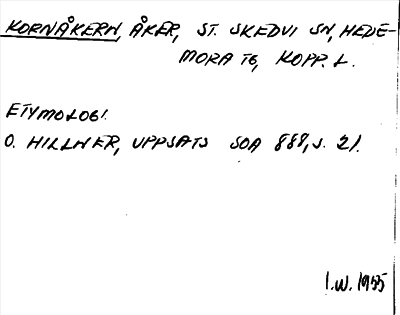 KORNÅKERN, ÅKER, ST. SKEDVI SN, HEDE-
MORA TG, KOPP. L.
ETYMOLOGI.
O. HILLNER, UPPSATS SOA 888, S. 21.
I.W. 1955